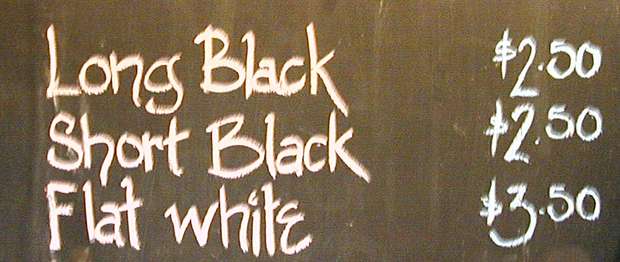 Long Black $2.50
Short Black $2.50
Flat white $3.50